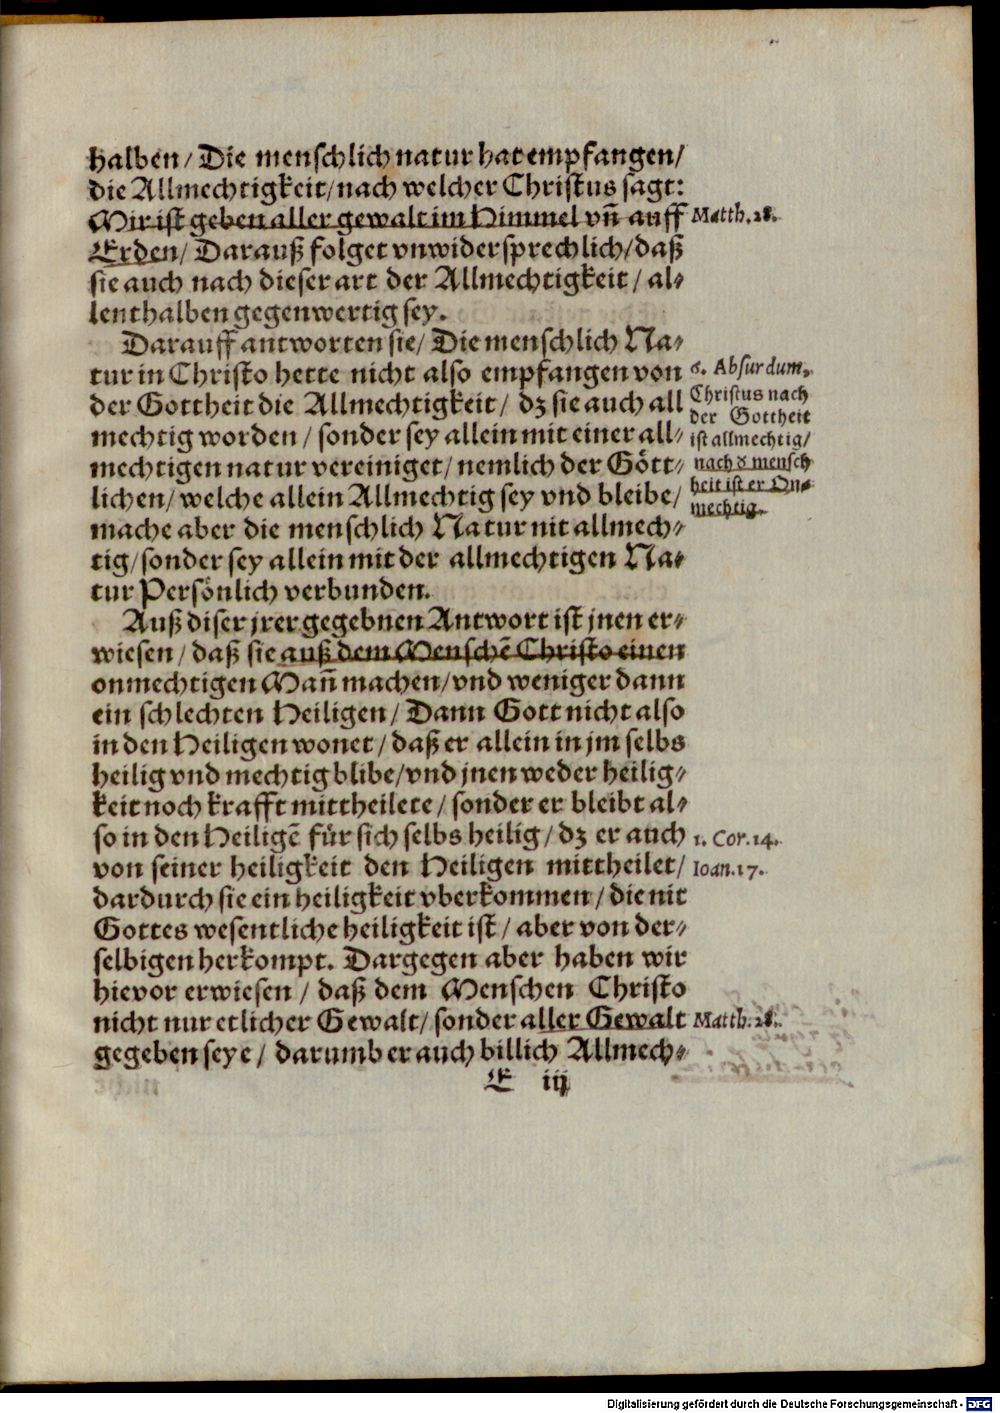 halben/ Die menschlich natur hat empfangen/
die Allmechtigkeit/ nach welcher Christus sagt:
Mir ist geben aller gewalt im Himmel vñ auff
Matth. 28.
Erden/ Darauß folget vnwidersprechlich/ daß
sie auch nach dieser art der Allmechtigkeit/ al-
lenthalben gegenwertig sey.
Darauff antworten sie/ Die menschlich Na-
tur in Christo hette nicht also empfangen von
der Gottheit die Allmechtigkeit/ dz sie auch all
mechtig worden/ sonder sey allein mit einer all-
mechtigen natur vereiniget/ nemlich der Gött-
lichen/ welche allein Allmechtig sey vnd bleibe/
mache aber die menschlich Natur nit allmech-
tig/ sonder sey allein mit der allmechtigen Na-
tur Persönlich verbunden.
6. Absurdum.
Christus nach
der Gottheit
ist allmechtig/
nach d mensch
heit ist er On-
mechtig.
Auß diser jrer gegebnen Antwort ist jnen er-
wiesen/ daß sie auß dem Menschẽ Christo einen
onmechtigen Mañ machen/ vnd weniger dann
ein schlechten Heiligen/ Dann Gott nicht also
in den Heiligen wonet/ daß er allein in jm selbs
heilig vnd mechtig blibe/ vnd jnen weder heilig-
keit noch krafft mittheilete/ sonder er bleibt al-
so in den Heiligẽ für sich selbs heilig/ dz er auch
1. Cor. 14.
von seiner heiligkeit den Heiligen mittheilet/
Ioan. 17.
dardurch sie ein heiligkeit vberkommen/ die nit
Gottes wesentliche heiligkeit ist/ aber von der-
selbigen herkompt. Dargegen aber haben wir
hievor erwiesen/ daß dem Menschen Christo
nicht nur etlicher Gewalt/ sonder aller Gewalt
Matth. 28.
gegeben seye/ darumb er auch billich Allmech-
E iij
Digitalisierung gefördert durch die Deutsche Forschungsgemeinschaft - DFG